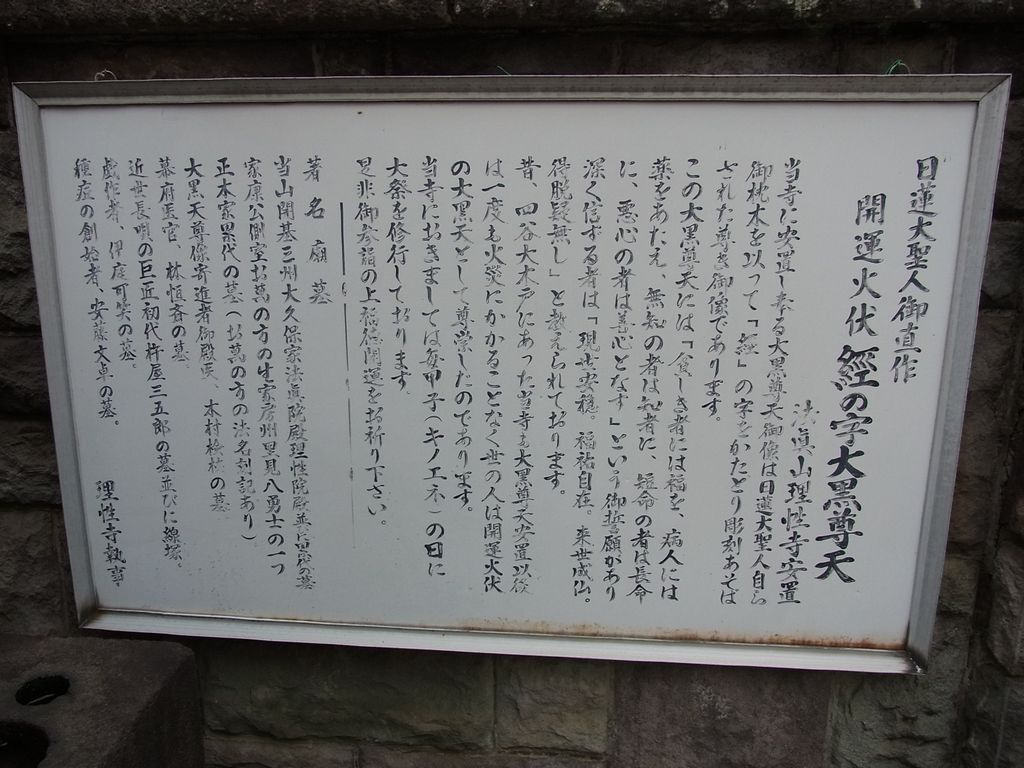 日蓮大聖人御直作
開運火伏 經の字大黒尊天
法眞山理性寺安置
当寺に安置し奉る大黒尊天御像は日蓮大聖人自ら
御枕木を以って「經」の字をかたどり彫刻あそば
された尊き御像であります。
この大黒尊天には「貧しき者には福を、病人には
薬をあたえ、無知の者は知者に、短命の者は長命
に、悪心の者は善心となす」という御誓願があり
深く信ずる者は「現世安穏。福祐自在。来世成仏。
得脱疑無し」と教えられております。
昔、四谷大木戸にあった当寺も大黒尊天安置以後
は一度も火災にかかることなく世の人は開運火伏
の大黒天として尊崇したのであります。
当寺におきましては毎甲子(キノエネ)の日に
大祭を修行しております。
是非御参詣の上福徳開運をお祈り下さい。
著名廟墓
当山開基三州大久保家法眞院殿理性院殿並に累代の墓
家康公側室お萬の方の生家房州里見八勇士の一つ
正木家累代の墓(お萬の方の法名刻記あり)
大黒天尊像寄進者御殿医、木村検校の墓
幕府医官 林恒斉の墓
近世長唄の巨匠初代杵屋三五郎の墓並びに線塚。
戯作者、伊庭可笑の墓。
種痘の創始者、安藤文卓の墓。
理性寺執事